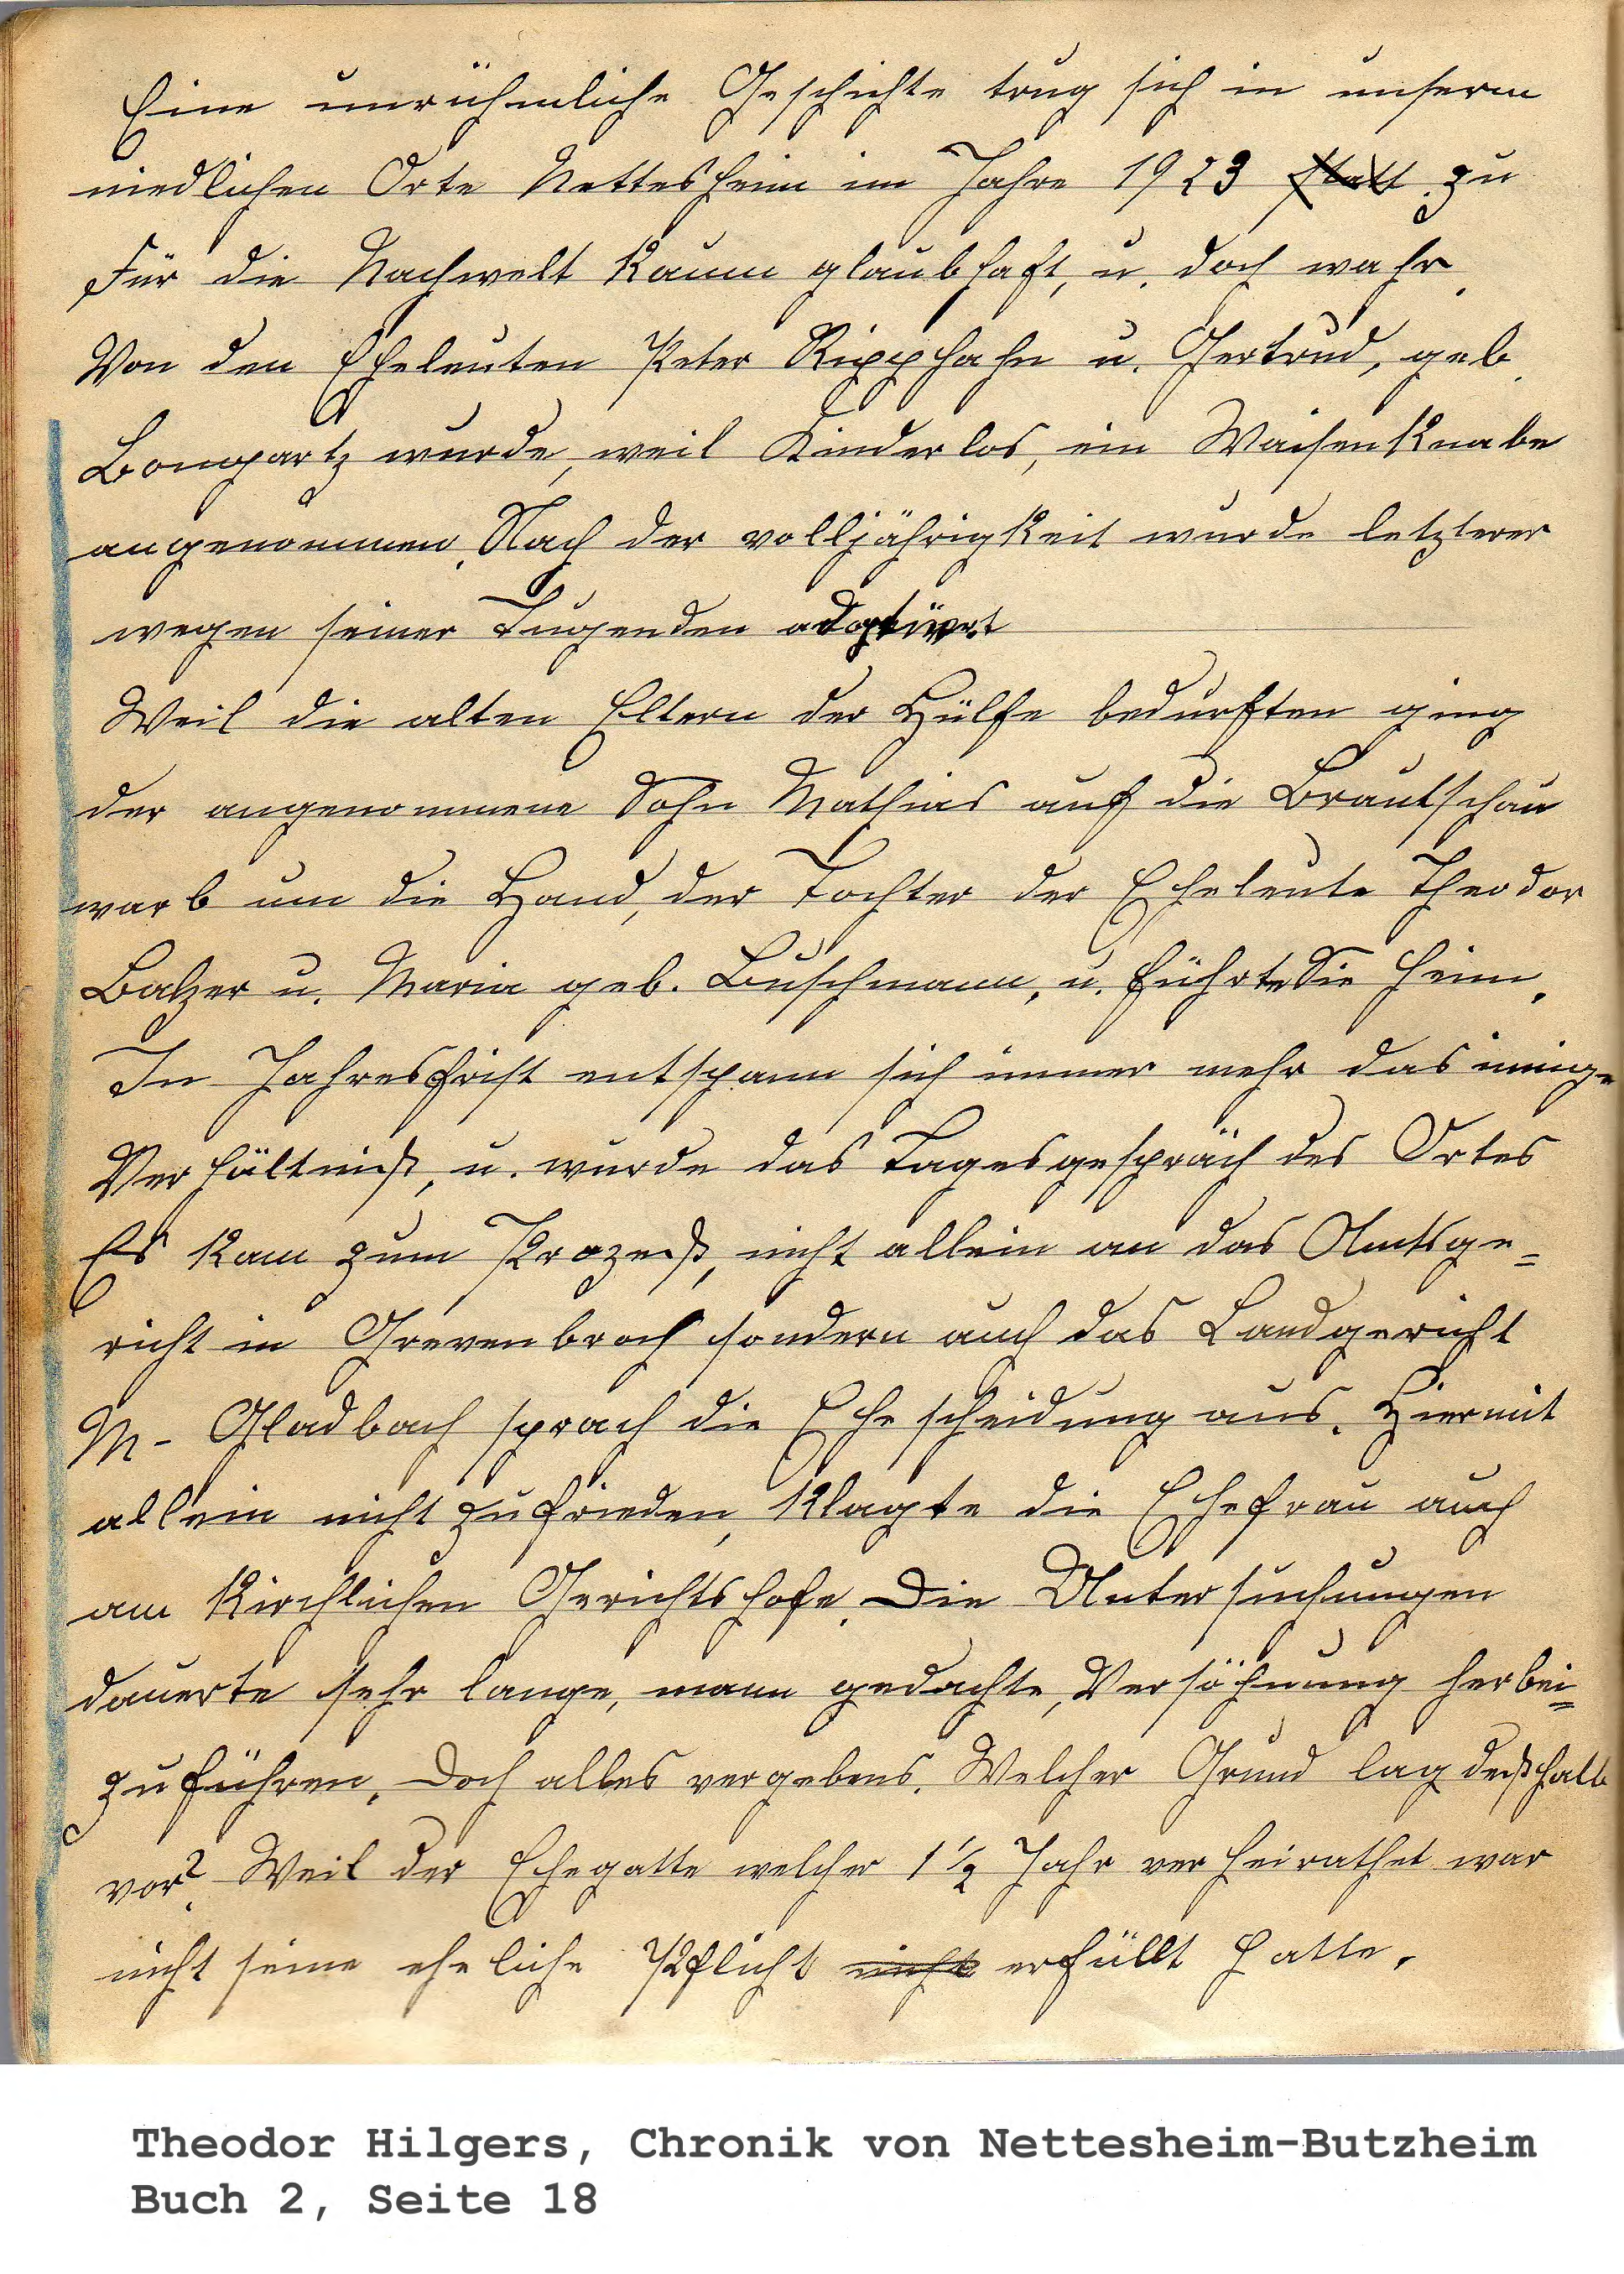 Eine unrühmliche Geschichte trug sich in unserm
niedlichen Orte Nettesheim im Jahre 1923 statt zu
Für die Nachwelt kaum glaubhaft, u. doch wahr.
Von den Eheleuten Peter Ripphahn u. Gertrud, geb.
Bongartz wurde, weil Kinderlos, ein Waisenknabe
angenommen. Nach der volljährigkeit wurde letzterer
wegen seiner Tugenden adoptiert
Weil die alten Eltern der Hülfe bedurften ging
der angenommene Sohn Mathias auf die Brautschau
warb um die Hand, der Tochter der Eheleute Theodor
Balzer u. Maria geb. Buschmann, u. führte Sie heim.
In Jahresfrist entspann sich immer mehr das innige
Verhältniß, u. wurde das Tagesgespräch des Ortes
Es kam zum Prozeß, nicht allein an das Amtsge=
richt in Grevenbroch sondern auch das Landgericht
M- Gladbach sprach die Ehescheidung aus. Hiermit
allein nicht zufrieden, klagte die Ehefrau auch
am Kirchlichen Gerichtshofe. Die Untersuchungen
dauerte sehr lange, mann gedachte, Versöhnung herbei=
zuführen. Doch alles vergebens. Welcher Grund lag deßhalb
vor? Weil der Ehegatte welcher 1½ Jahr verheirathet war
nicht seine eheliche Pflicht nicht erfüllt hatte.
Theodor Hilgers, Chronik von Nettesheim-Butzheim
Buch 2, Seite 18